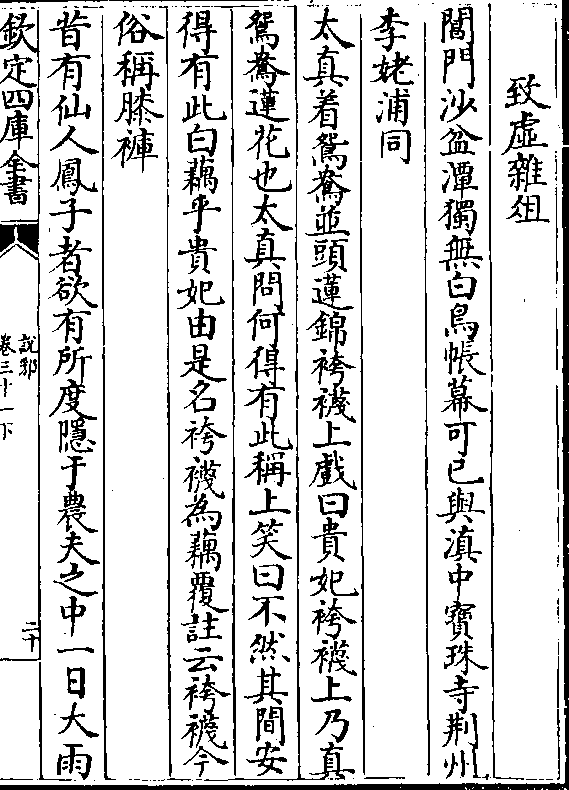 致虚雜俎
閶門沙盆潭獨無白鳥帳幕可已與滇中寳珠寺荆州
李姥浦同
太真着鴛鴦並頭蓮錦袴襪上戲曰貴妃袴襪上乃真
鴛鴦蓮花也太真問何得有此稱上笑曰不然其間安
得有此白藕乎貴妃由是名袴襪為藕覆註云袴襪今
俗稱膝褲
昔有仙人鳳子者欲有所度隱于農夫之中一日大雨
欽定四庫全書
説郛
卷三十一下
二十